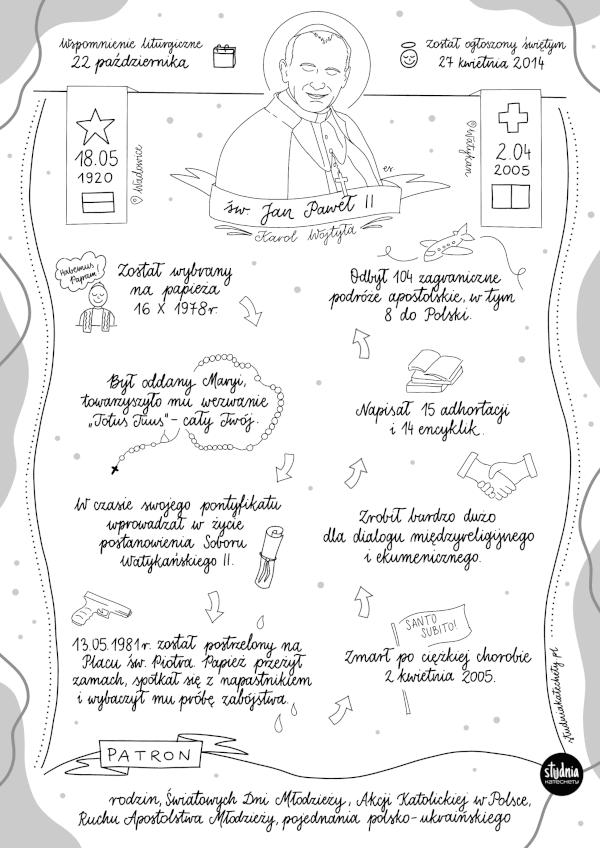 Wspomnienie liturgiczne
22 października
został ogłoszony świętym
27 kwietnia 2014
18.05
1920
Wadowice
Watykan
2.04
2005
es.
św. Jan Paweł II
Karol Wojtyła
Habemus
Papam!
Został wybrany
na papieża
16 X 1978r.
Odbył 104 zagraniczne
podróże apostolskie, w tym
8 do Polski.
Był oddany Maryi,
towarzyszyło mu wezwanie
„Totus Tuus" - cały Twój.
Napisał 15 adhortacji
i 14 encyklik.
W czasie swojego pontyfikatu
wprowadzał w życie
postanowienia Soboru
Watykańskiego II.
Zrobił bardzo dużo
dla dialogu międzyreligijnego
i ekumenicznego.
13.05.1981r. został postrzelony na
Placu św. Piotra. Papież przeżył
zamach, spotkał się z napastnikiem
i wybaczył mu próbę zabójstwa.
SANTO
SUBITO!
Zmarł po ciężkiej chorobie
2 kwietnia 2005.
studniakatechety.pl
PATRON
studnia
KATECHETY
rodzin, Światowych Dni Młodzieży, Akcji Katolickiej w Polsce,
Ruchu Apostolstwa Młodzieży, pojednania polsko-ukraińskiego